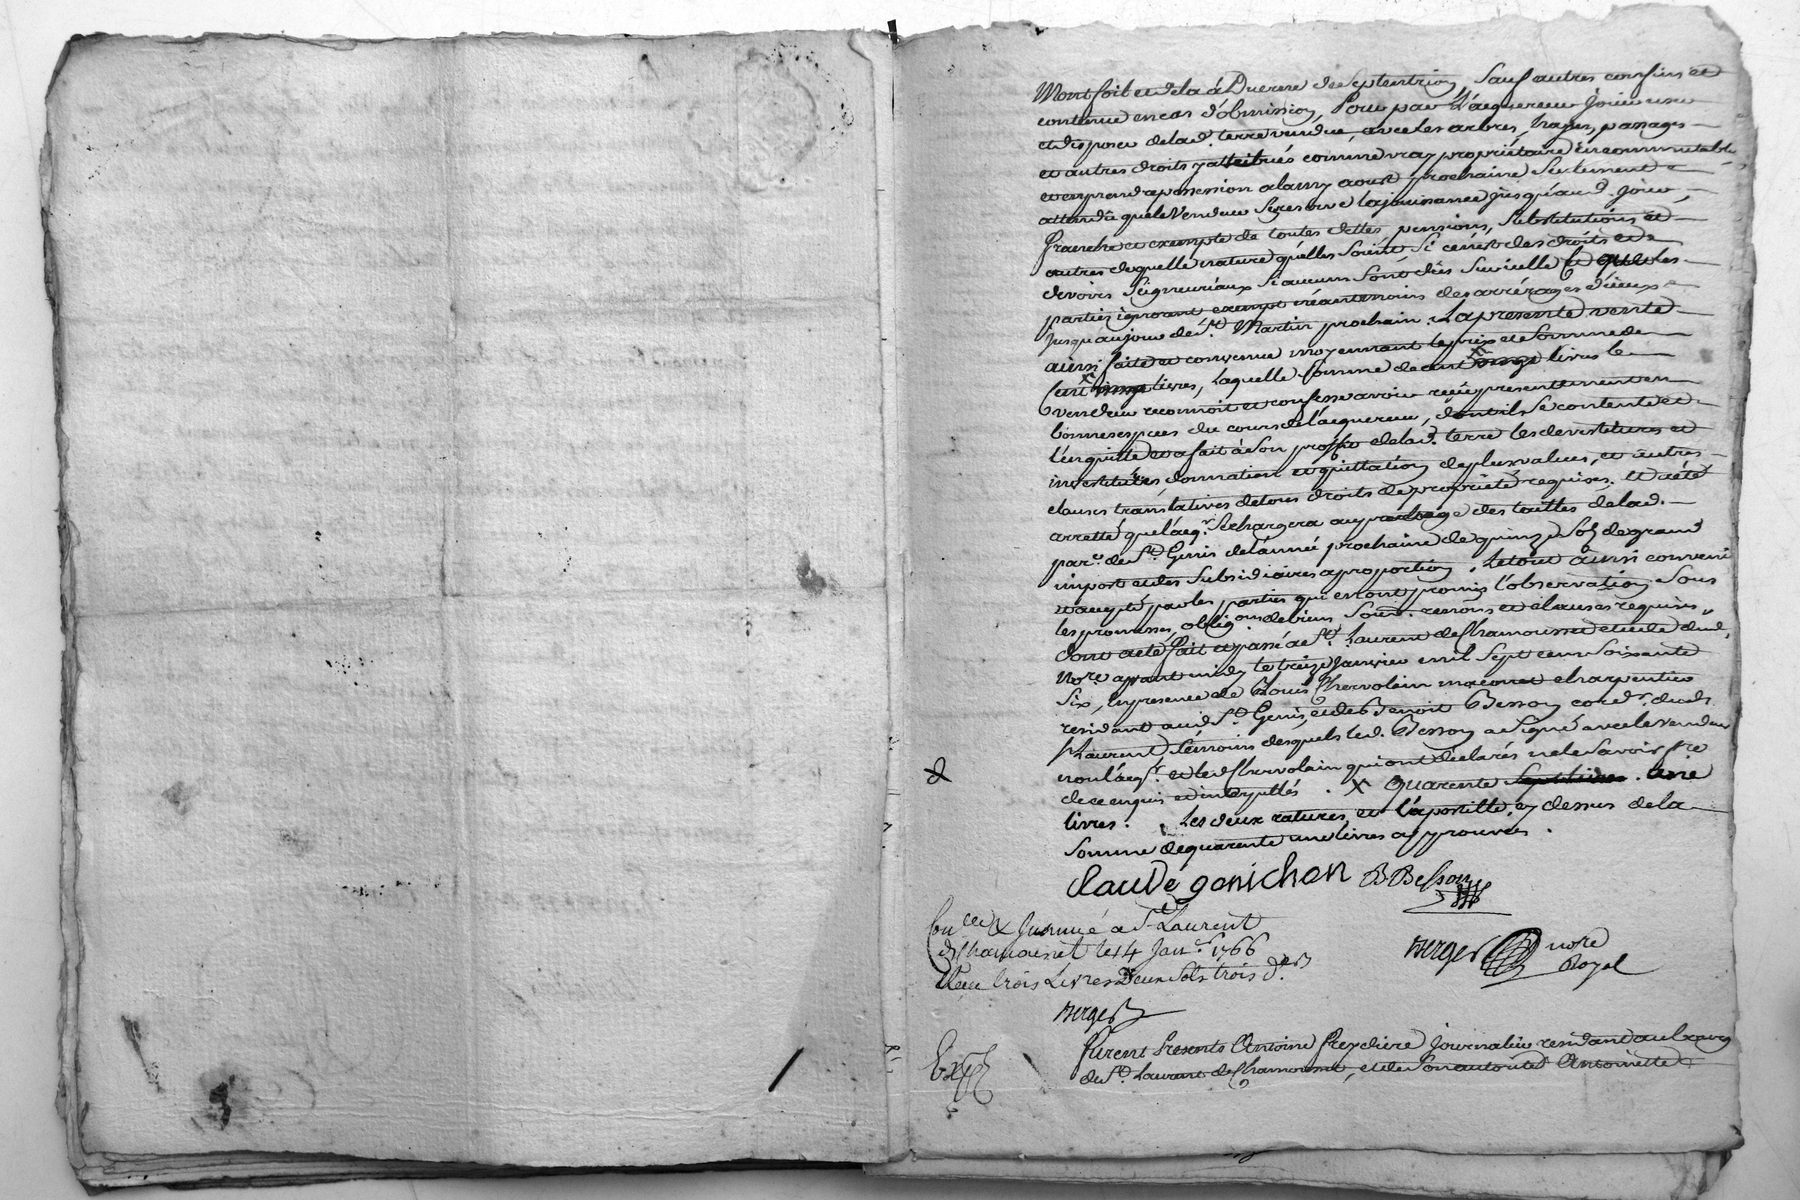 Montfort et dela à Duerne de Septentrion, Sauf autres confins et
contenue en cas d'obmission, Pour par L'acquereur jouir user
et disposer de lad. terre vendue, avec les arbres, hayes, passages
et autres droits y attribués comme vray propriétaire incommutable
et en prendre possession a la my aoust prochaine Seulement
attendu que le vendeur Se reserve la jouissance jusqu'aud. jour,
franche et exempte de toutes dettes, pensions, Substitutions et
autres de quelle nature qu'elles Soient, Si ce n'est des droits et
devoirs Seigneuriaux Si aucuns Sont dûs Sur icelle Ce que les
parties ignorent exempt néantmoins des arrérages d'iceux
jusqu'au jour de St. Martin prochain. La presente vente
ainsi faite et convenue moyennant le prix et Somme de
livres, Laquelle Somme de livres le
vendeur reconnoit et confesse avoir reçüe presentement en
bonnes espèces du cours de l'acquereur, dont il Se contente et
l'en quitte et a fait à Son proffit de lad. terre les devestitures et
investitures, donnation et quittation de plus values, et autres
clauses translatives de tous droits de propriété requises. Et a été
arretté que l'acqr. Se chargera au des tailles de lad.
par. de St. Genis de l'année prochaine de quinze Sols de grand
impost et des Subsidiaires a proportion. Le tout ainsi convenu
et accepté par les parties qui en ont promis l'observation Sous
les promesses, obligons de biens, Soum. renons et clauses requises,
dont acte fait et passé à St. Laurent de Chamousset etude dud.
nore. avant midy le treize Janvier mil Sept cent Soixante
Six, en presence de Louis Chervolain maconet charpentier
residant aud. St. Genis, et de Benoit Besson cordr. dud.
St Laurent, témoins desquels led. Besson a Signé avec le vendeur
non l'acqr. et led. Chervolain qui ont déclarés ne le Savoir fre
de ce enquis et interpellés. x quarente une
livres. Les deux ratures, et l'apostille cy dessus de la
Somme de quarente une livres approuvés.
Claude gonichon B Besson
Conllé & Jnsinué a St Laurent
de Chamousset le 14 Janr. 1766
Reçu trois Livres Deux Sols trois drs
Berger nore
Royal
Berger
Expé
Furent Presents Antoine Freydiere journalier residant au bourg
de St. Laurent de Chamousset, et de Son autorité Antoinette